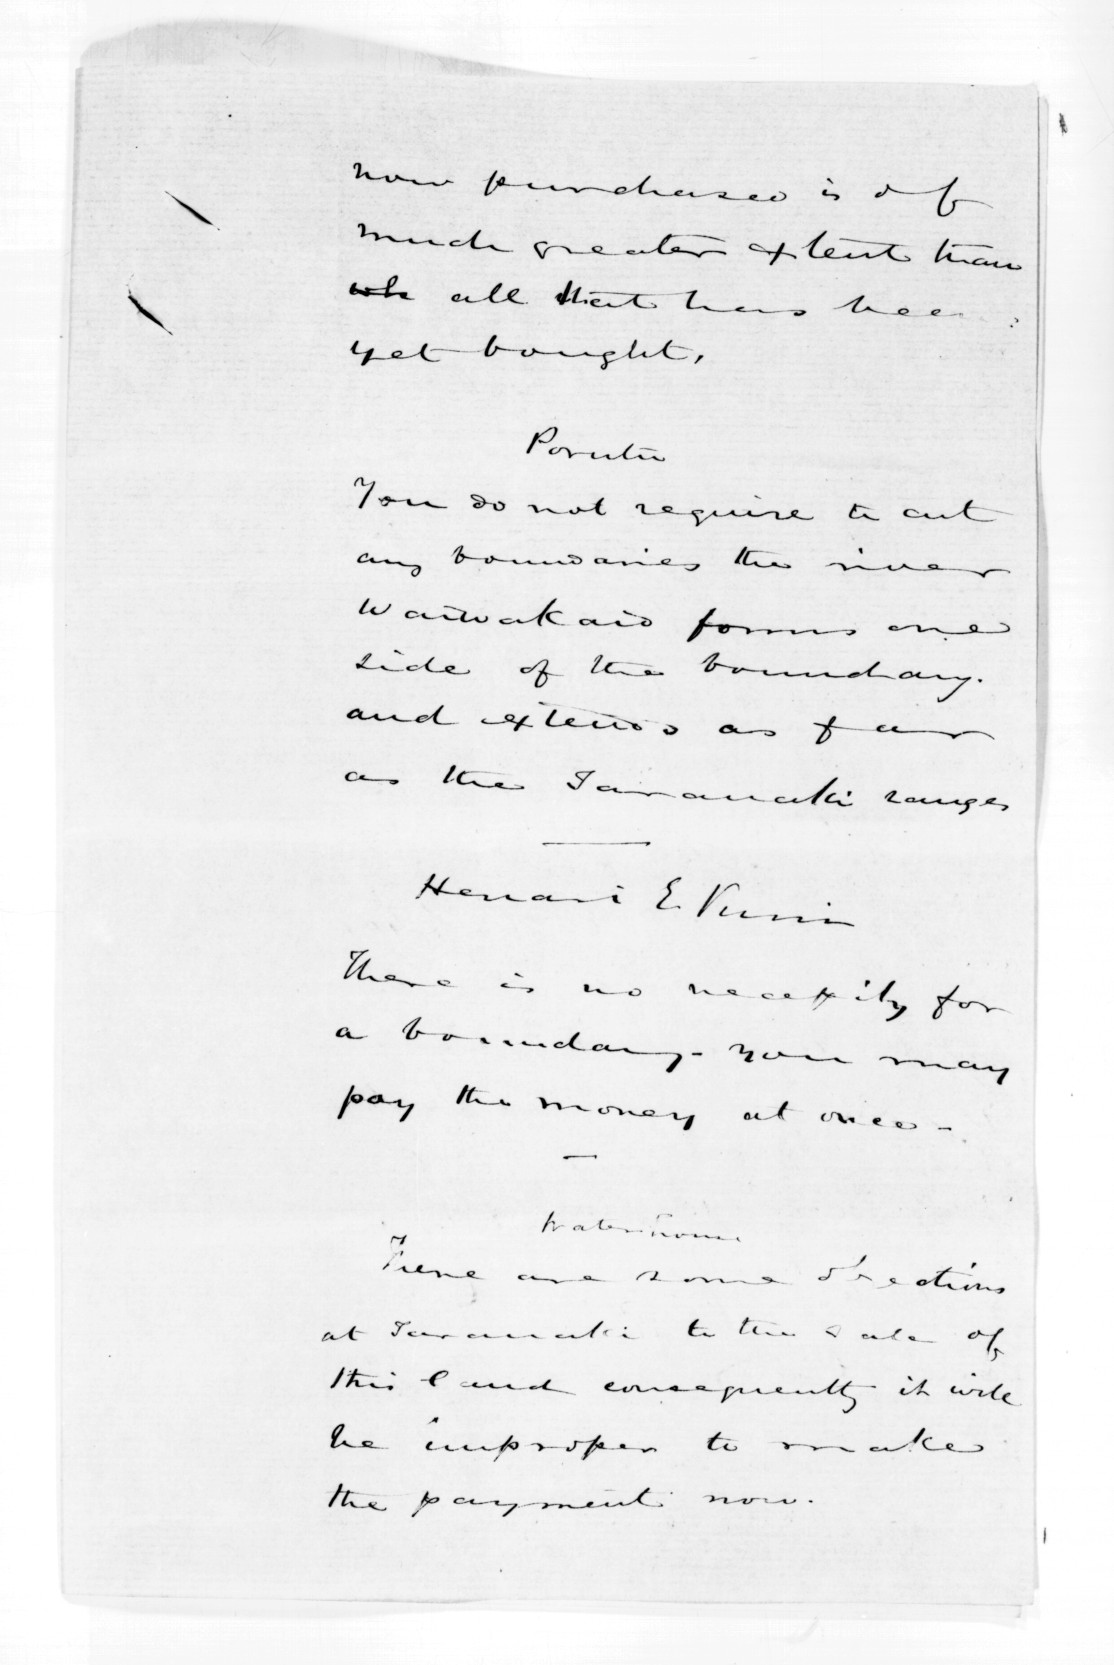 now purchased is of
much greater extent than
wh all that has been
yet bought,
Porutu
You do not require to cut
any boundaries the river
Waiwakaio forms one
side of the boundary.
and extends as far
as the Taranaki ranges
Henari E. Puni
There is no necessity for
a boundary - you may
pay the money at once -
There are some objections
at Taranaki to the sale of
this land consequently it will
be improper to make
the payment now.